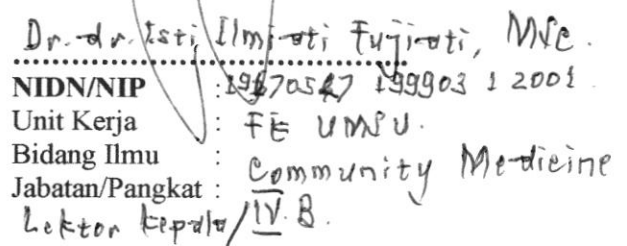 Dr. dr. Isti Ilmiati Fujiati, MSc.
NIDN/NIP : 19670527 199903 2 001
Unit Kerja : FK UMSU.
Bidang Ilmu : Community Medicine
Jabatan/Pangkat :
Lektor Kepala/IV.B.